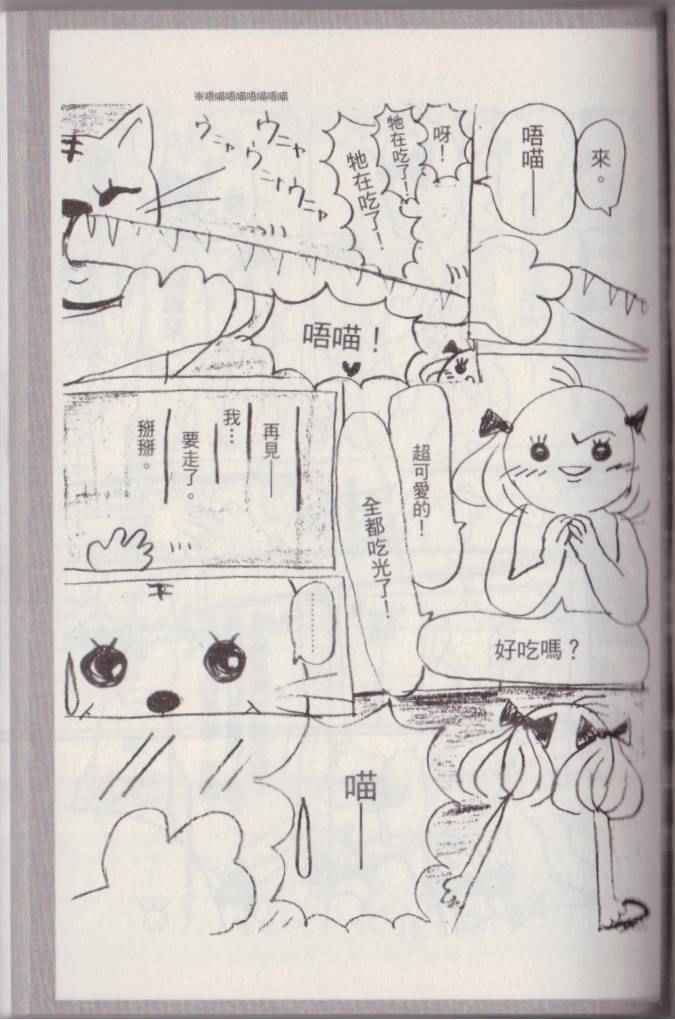 來。
唔喵——
呀！
牠在吃了！
牠在吃了！
※唔喵唔喵唔喵唔喵
ウニャ
ウニャ
ウニャ
ウニャ
唔喵！
好吃嗎？
超可愛的！
全都吃光了！
再見——
我…
要走了。
掰掰。
…………
喵——